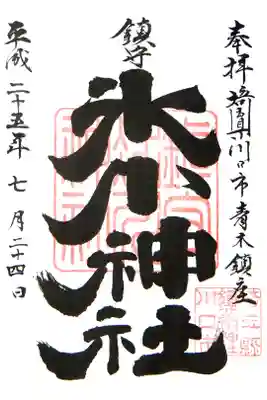 奉拝 埼玉県川口市青木鎮座
鎮守
氷川神社
平成二十五年 七月二十四日